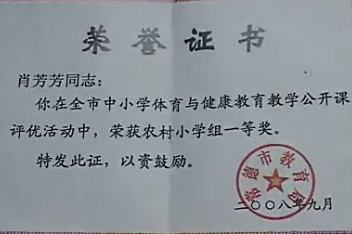 荣誉证书
肖芳芳同志：
你在全市中小学体育与健康教育教学公开课
评优活动中，荣获农村小学组一等奖。
特发此证，以资鼓励。
常德市教育局
二〇〇八年九月